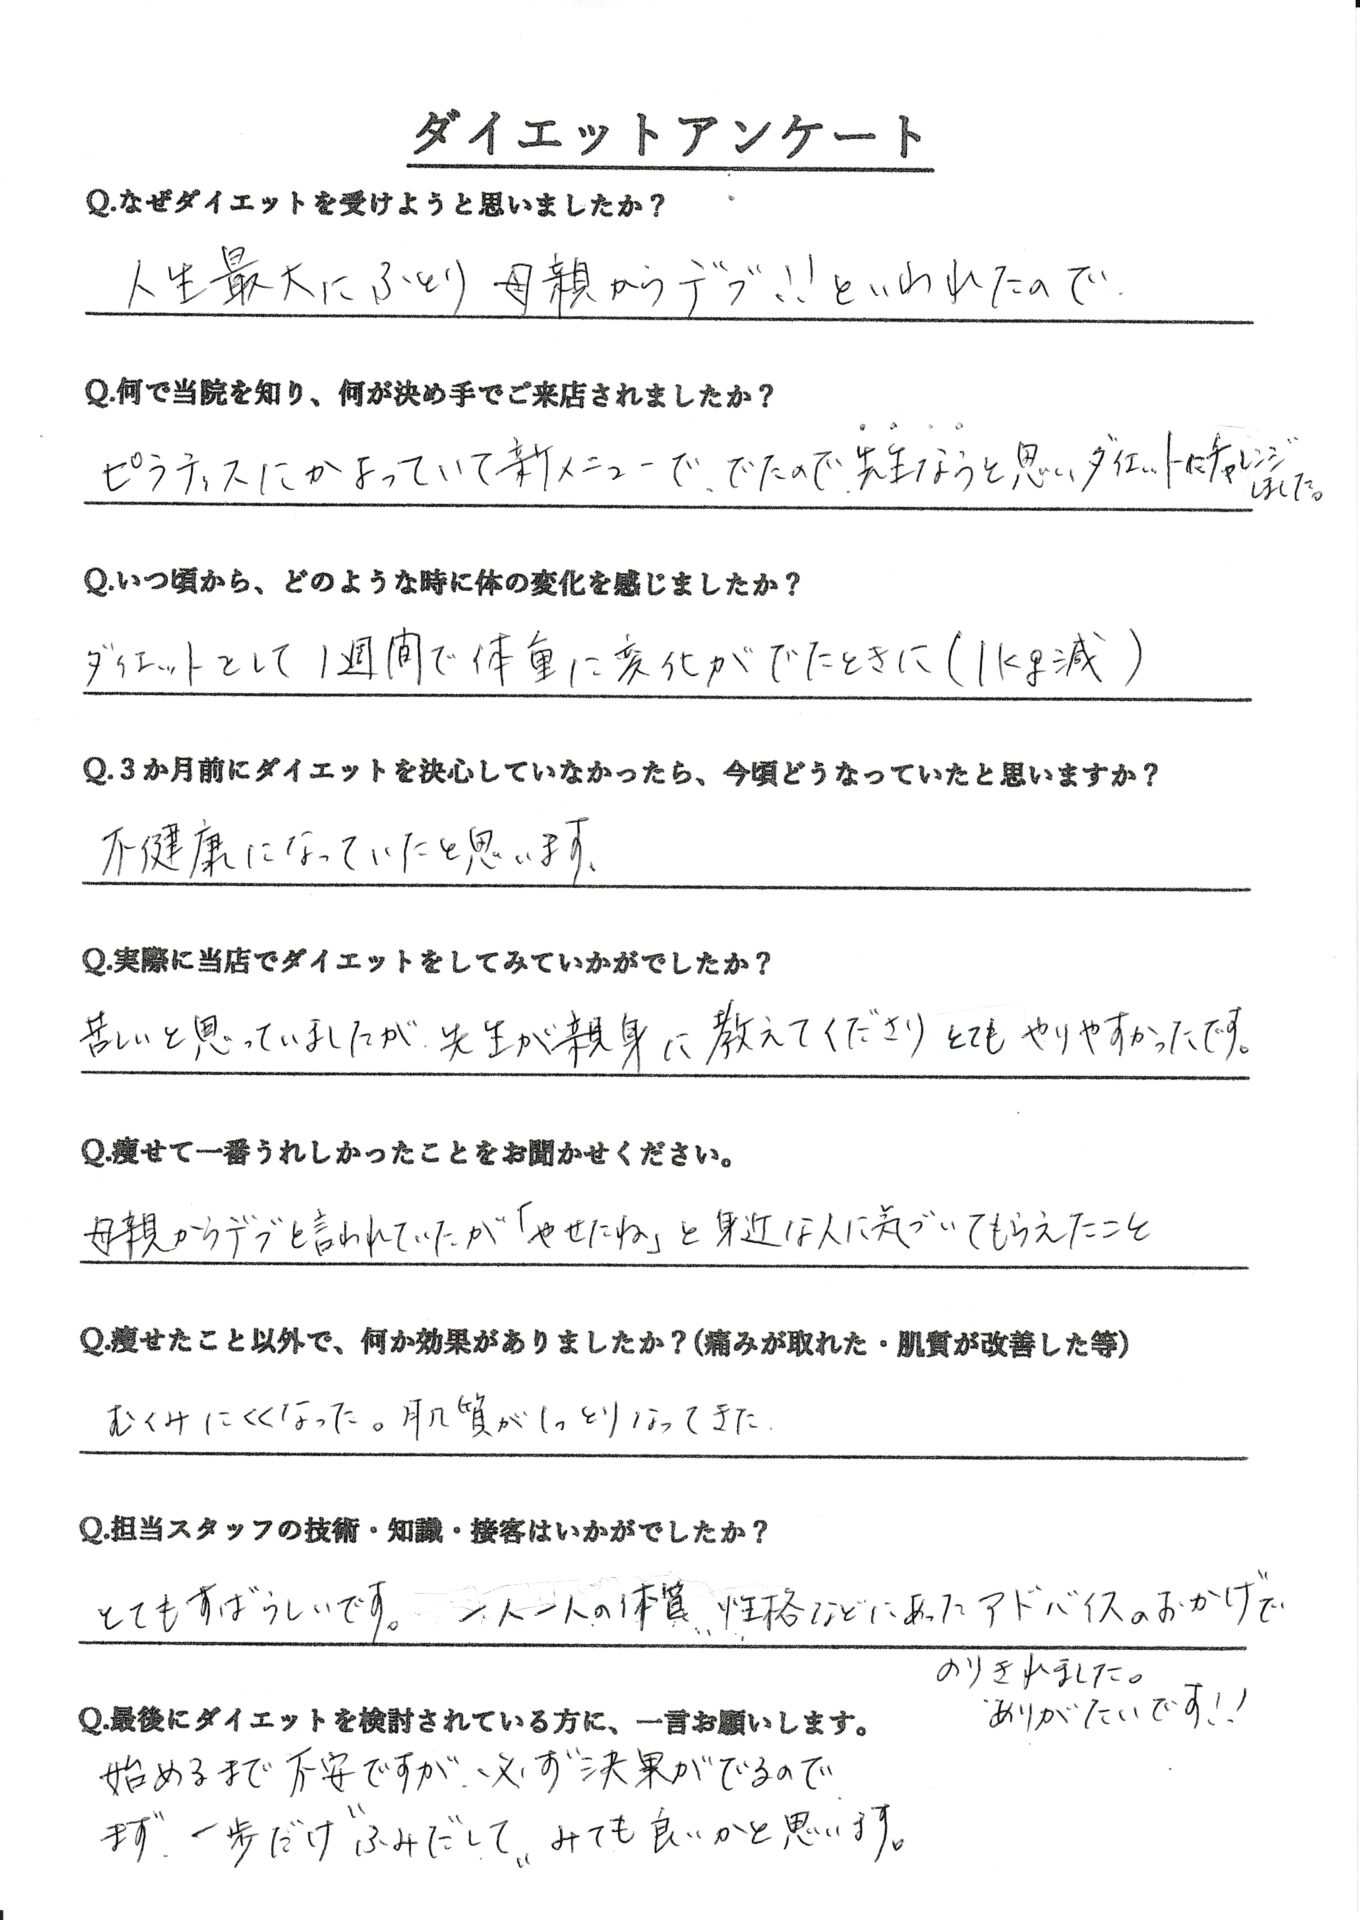 ダイエットアンケート
Q.なぜダイエットを受けようと思いましたか？
人生最大にふとり 母親からデブ!!といわれたので.
Q.何で当院を知り、何が決め手でご来店されましたか？
ピラティスにかよっていて新メニューで、でたので、先生ならと思いダイエットにチャレンジ
しました。
Q.いつ頃から、どのような時に体の変化を感じましたか？
ダイエットとして1週間で体重に変化がでたときに(1kg減)
Q.３か月前にダイエットを決心していなかったら、今頃どうなっていたと思いますか？
不健康になっていたと思います。
Q.実際に当店でダイエットをしてみていかがでしたか？
苦しいと思っていましたが、先生が親身に教えてくださりとてもやりやすかったです。
Q.痩せて一番うれしかったことをお聞かせください。
母親からデブと言われていたが「やせたね」と身近な人に気づいてもらえたこと
Q.痩せたこと以外で、何か効果がありましたか？(痛みが取れた・肌質が改善した等)
むくみにくくなった。肌質がしっとりなってきた.
Q.担当スタッフの技術・知識・接客はいかがでしたか？
とてもすばらしいです。 一人一人の体質、性格などにあったアドバイスのおかげで
のりきれました。
ありがたいです!!
Q.最後にダイエットを検討されている方に、一言お願いします。
始めるまで不安ですが、必ず決果がでるので
まず 一歩だけ"ふみだして"みても良いかと思います。